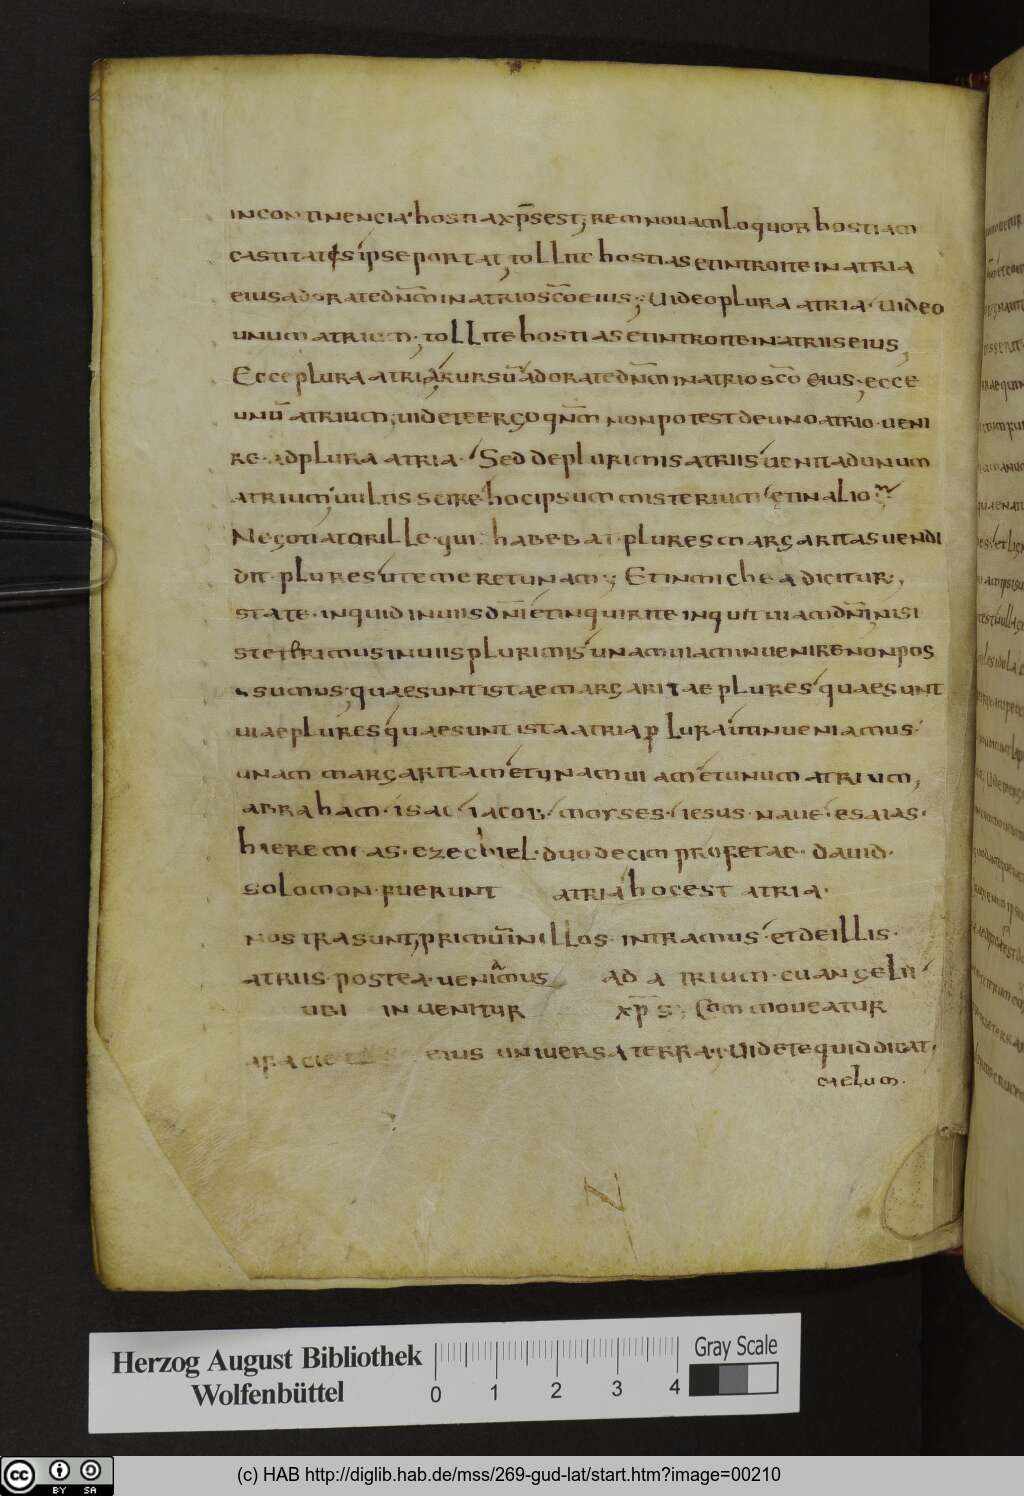 incontinencia·hostia xp̅s est; rem nouam loquor hostiam
castitatis ipse portat, tollite hostias et introite in atria
eius adorate dn̅m in atrio sc̅o eius; Uideo plura atria· uideo
unum atrium; tollite hostias et introite in atriis eius,
Ecce plura atria, rursu̅ adorate dn̅m in atrio sc̅o eius; ecce
unu̅ atrium; uidete ergo qn̅m non potest de uno atrio· ueni
re· ad plura atria· Sed de plurimis atriis uenit ad unum
atrium; uultis scire hoc ipsum misterium et in alio
Negotiator ille· qui habebat· plures margaritas uendi
dit· plures ut emeret unam; Et in michea dicitur;,
state· inquid in uiis dn̅i et inquirite inquit uiam dn̅i, nisi
steterimus in uiis plurimis unam uiam inuenire non pos
sumus; quae sunt istae margaritae plures quae sunt
uiae plures quae sunt ista atria plura ut inueniamus·
unam margaritam et unam uiam et unum atrium,
abraham· isac iacob· moyses· iesus· naue· esaias·
hieremias· ezechiel· duodecim profetae· dauid·
solomon· fuerunt atria hoc est atria·
nostra sunt, primu̅ in illos· intramus· et de illis·
atriis· postea· uenimus ad atrium· euangelii
ubi inuenitur xp̅s; Commoueatur
a facie eius uniuersa terra·; Uidete quid dicat·
caelum·
N
Herzog August Bibliothek
Wolfenbüttel
0 1 2 3 4
Gray Scale
cc BY SA
(c) HAB http://diglib.hab.de/mss/269-gud-lat/start.htm?image=00210